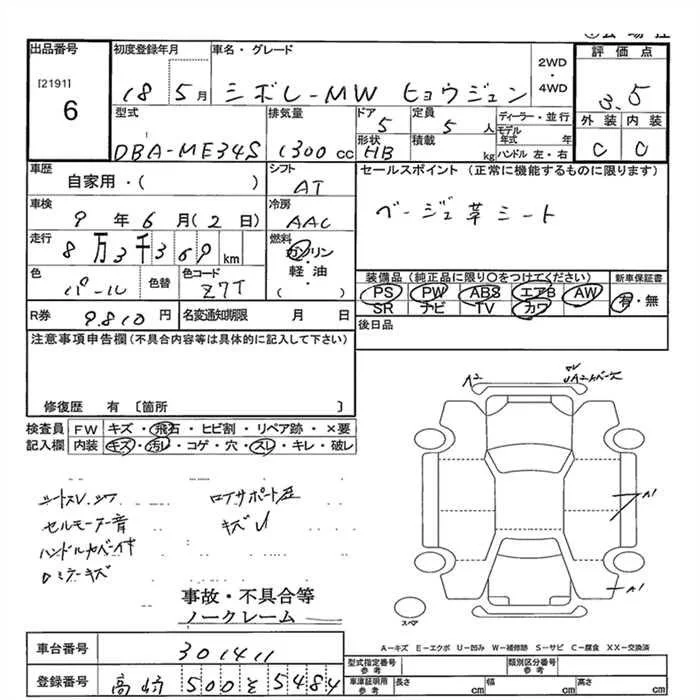 出品番号
[2191]
6
初度登録年月
18 5月
車名・グレード
シボレーMW ヒョウジュン
2WD
・
4WD
評価点
3.5
外装 内装
C C
型式
DBA-ME34S
排気量
1300cc
ドア
5
定員
5人
ディーラー・並行
形状
HB
積載
kg
モデル年式 年
ハンドル 左・右
車歴
自家用・( )
シフト
AT
車検
9年6月(2日)
冷房
AAC
走行
8万3千369km
燃料
ガソリン
・
軽油
( )
色
パール
色替
色コード
Z7T
R券
9.810円
名変通知期限 月 日
セールスポイント (正常に機能するものに限ります)
ベージュ革シート
装備品 (純正品に限り○をつけてください)
PS PW ABS エアB AW
SR ナビ TV カワ
新車保証書
有・無
後日品
注意事項申告欄(不具合内容等は具体的に記入して下さい)
修復歴 有 〔箇所 〕
検査員
記入欄
FW キズ・飛石・ヒビ割・リペア跡・×要
内装 キズ・汚レ・コゲ・穴・スレ・キレ・破レ
A2
A1
A1
セルモーター音
ハンドルカバー付
キズ
事故・不具合等
ノークレーム
スペア
A-キズ E-エクボ U-凹み W-補修跡 S-サビ C-腐食 XX-交換済
車台番号 301411
登録番号 高崎 500 そ 5484
型式指定番号
参考
類別区分番号
参考
車庫証明用
参考
長さ cm
幅 cm
高さ cm